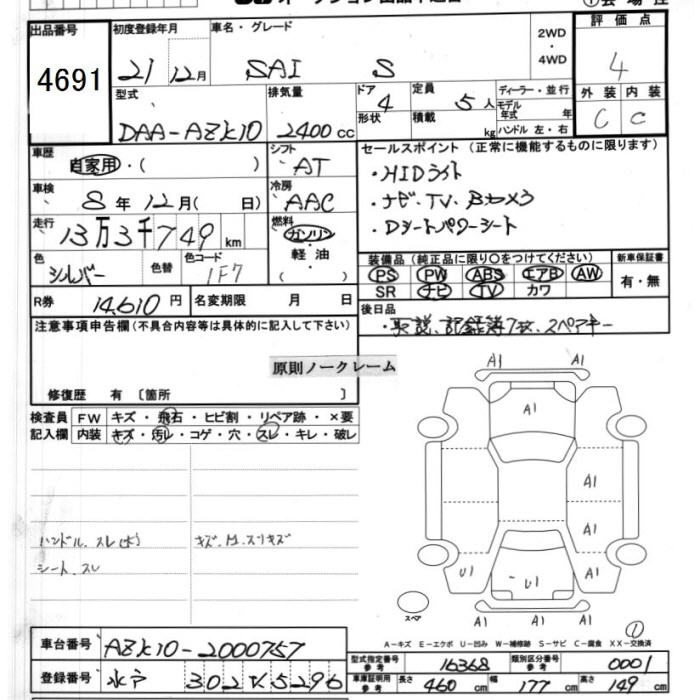 出品番号
4691
初度登録年月
21 12月
車名・グレード
SAI S
2WD
・
4WD
評価点
4
外装 内装
C C
型式
DAA-AZK10
排気量
2400cc
ドア
4
形状
定員
5人
積載
kg
ディーラー・並行
モデル年式 年
ハンドル 左・右
車歴
自家用・( )
シフト
AT
車検
8年12月( 日)
冷房
AAC
走行
13万3千749km
燃料
ガソリン
・
軽油
・
( )
色
シルバー
色替
色コード
1F7
セールスポイント (正常に機能するものに限ります)
・HIDライト
・ナビ、TV、Bカメラ
・Dシートパワーシート
装備品(純正品に限り○をつけてください)
PS PW ABS エアB AW
SR ナビ TV カワ
新車保証書
有・無
R券 14,610円
名変期限 月 日
後日品
・取説、記録簿7枚、スペアキー
注意事項申告欄(不具合内容等は具体的に記入して下さい)
原則ノークレーム
修復歴 有 〔箇所 〕
検査員
記入欄
FW キズ・飛石・ヒビ割・リペア跡・×要
内装 キズ・汚レ・コゲ・穴・スレ・キレ・破レ
ハンドル、スレ(大)
シート、スレ
A1 A1
A1
A1
A1
U1 U1 A1
A1 A1
スペア
A-キズ E-エクボ U-凹み W-補修跡 S-サビ C-腐食 XX-交換済
車台番号 AZK10-2000757
登録番号 水戸 302 ‪5296
型式指定番号
参考
16368
類別区分番号
参考
0001
車庫証明用
参考
長さ 460cm 幅 177cm 高さ 149cm